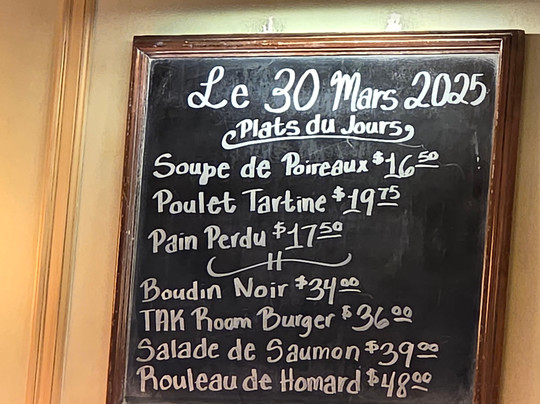 Le 30 Mars 2025
Plats du Jours
Soupe de Poireaux $16.50
Poulet Tartine $19.75
Pain Perdu $17.50
H
Boudin Noir $34.00
TAK Room Burger $36.00
Salade de Saumon $39.00
Rouleau de Homard $48.00